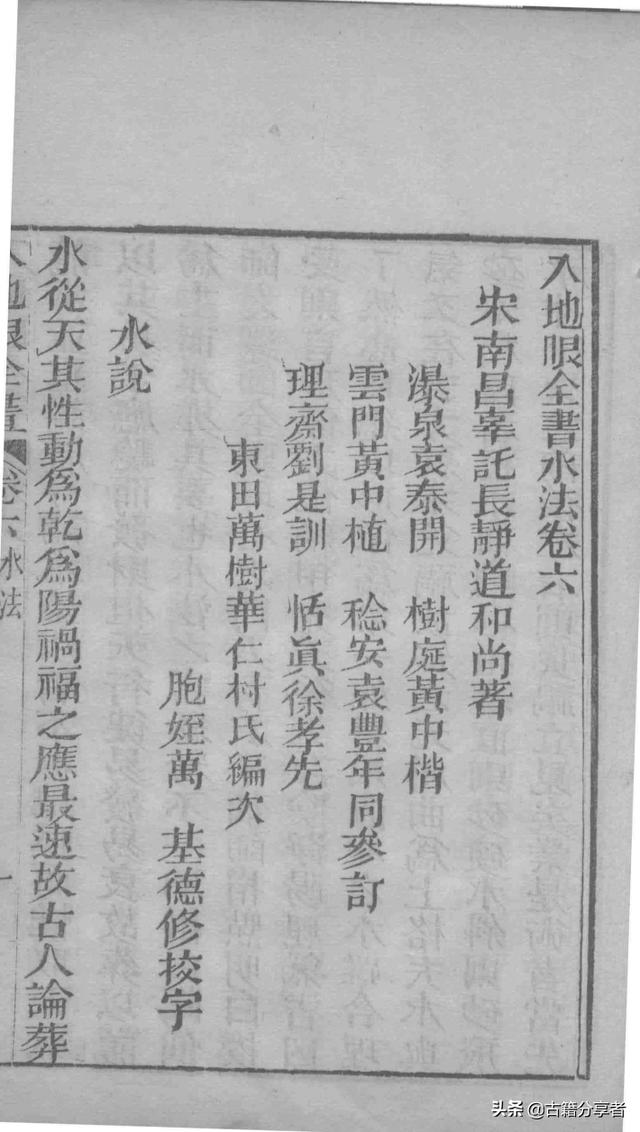 入地眼全書水法卷六
宋南昌辜託長靜道和尚著
瀑泉袁泰開 樹庭黃中楷
雲門黃中植 稔安袁豐年同參訂
理齋劉是訓 恬眞徐孝先
東田萬樹華仁村氏編次
胞姪萬 基德修挍字
水說
水從天其性動爲乾爲陽禍福之應最速故古人論葬
入地眼全書 卷六水法 一
头条 @古籍分享者